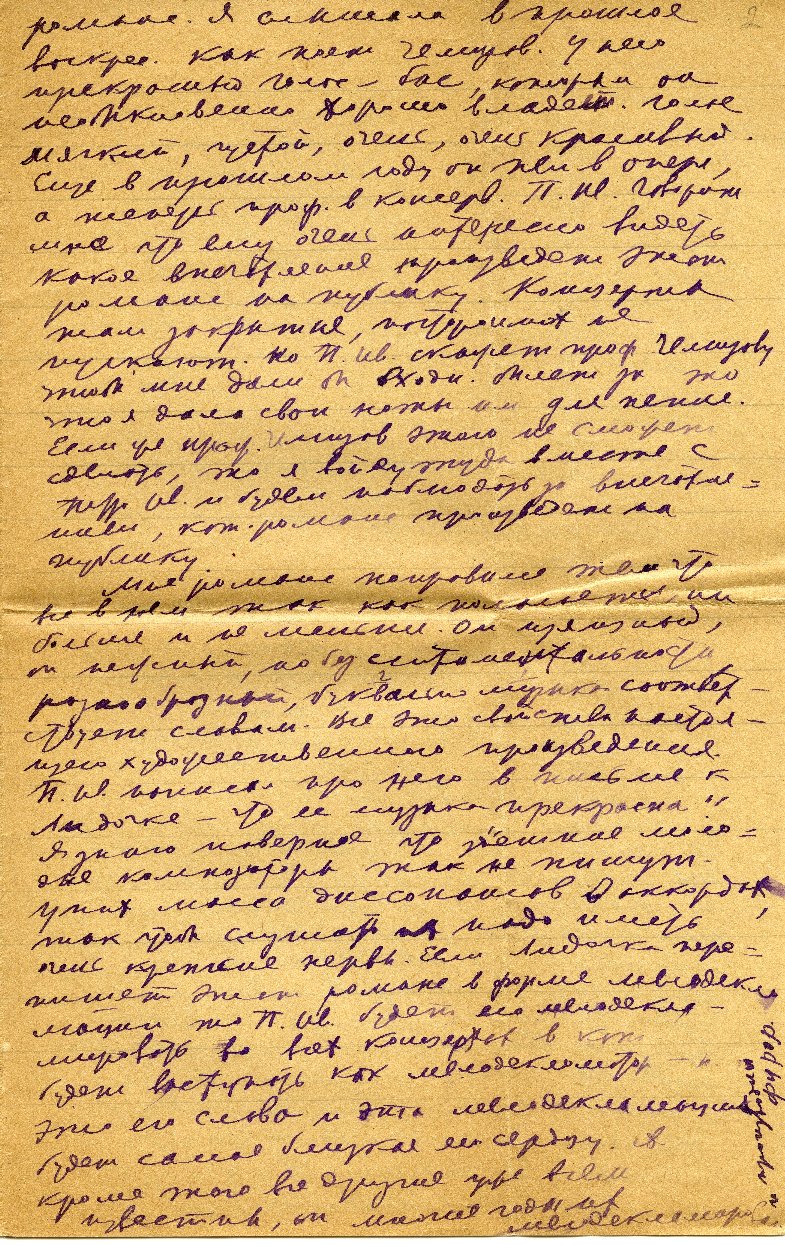 2
романс. Я слышала в прошлое
воскрес. как поет Чемизов. У него
прекрасный голос – бас, которым он
необыкновенно хорошо владеет. голос
мягкий, густой, очень, очень красивый.
Еще в прошлом году он пел в опере,
а теперь проф. в консерв. П. Ив. говорит
мне что ему очень интересно видеть
какое впечатление произведет этот
романс на публику. Концерты
там закрытые, посторонних не
пускают. Но П. Ив. скажет проф. Чемизову
чтоб мне дали б входн. билет за то
что я дала свои ноты им для пения.
Если же проф. Чемизов этого не сможет
сделать, то я войду туда вместе с
Ив. и будем наблюдать за впечатле=
нием, кот. романс произведет на
публику.
Мне романс понравился тем что
все в нем так как полагается, ни
больше и не меньше. Он изящный,
он нежный, но без сентиментальности,
разнообразный, буквально музыка соответ–
ствует словам. Все это свойства настоя–
щего художественного произведения
П. Ив. написал про него в письме к
Лидочке – что ее музыка прекрасна"
Я знаю наверное что здешние моло=
дые композиторы так не пишут.
У них масса диссонансов в аккордах,
так чтоб слушать надо иметь
очень крепкие нервы. Если Лидочка пере=
пишет этот романс в форме мелодекла
мации то П. Ив. будет его мелодекла–
мировать во всех концертах в кот.
будет выступать как мелодекламатор –
это его слова и эта мелодекламация
будет самое близкое его сердцу. А
кроме того все другие уже всем
известны, он многие годы их
мелодекламировал